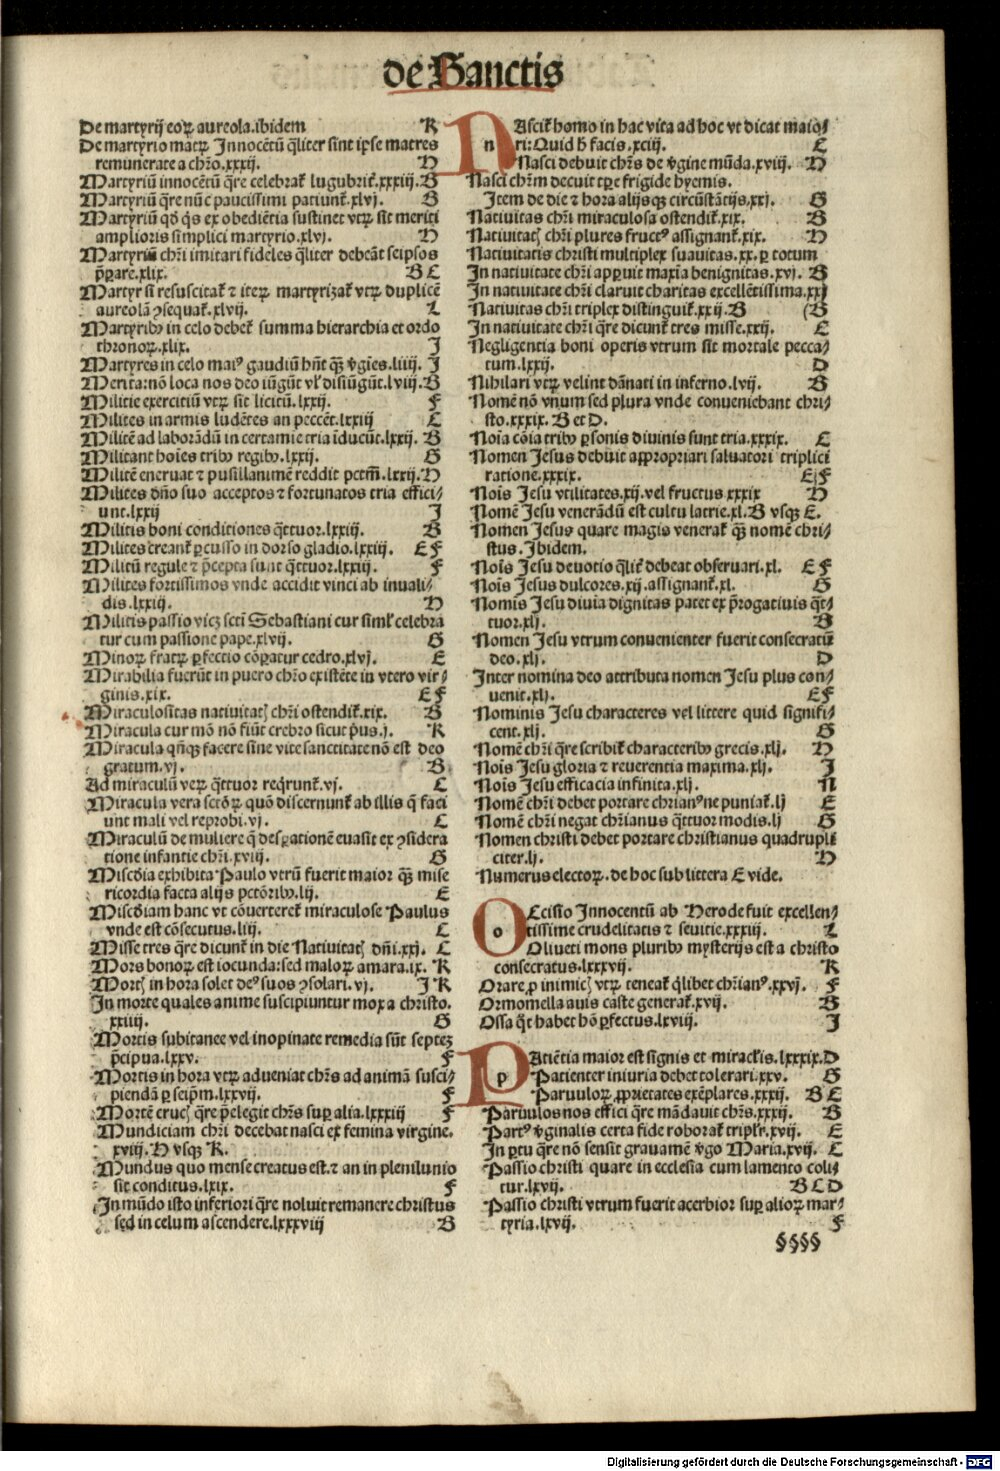 de Sanctis
De martyrij eoꝝ aureola.ibidem K
De martyrio matꝝ Innocētū q̄liter sint ipse matres
remunerate a chr̄o.xxxij. H
Martyriū innocētū q̄re celebrat̄ lugubrit̄.xxxiij. B
Martyriū q̄re nūc paucissimi patiunt̄.xlvj. B
Martyriū qd̄ q̄s ex obediētia sustinet vtꝝ sit meriti
amplioris simplici martyrio.xlvj. H
Martyriū chr̄i imitari fideles q̄liter debeāt seipsos
p̄parare.xlix. B C
Martyr si resuscitat̄ ⁊ iteꝝ martyrizat̄ vtꝝ duplicē
aureolā ꝯsequat̄.xlvij. L
Martyribꝰ in celo debet̄ summa hierarchia et ordo
thronoꝝ.xlix. I
Martyres in celo maiꝰ gaudiū hn̄t qꝫ v̓gīes.liiij. I
Merita: nō loca nos deo iūgūt vl̓ disiūgūt.lviij. B
Militie exercitiū vtꝝ sit licitū.lxxij. F
Milites in armis ludētes an peccēt.lxxiij C
Militē ad laborādū in certamīe tria īducūt.lxxij. B
Militant hoīes tribꝰ regibꝰ.lxxij. G
Militē eneruat ⁊ pusillanimē reddit pctm̄.lxxij. H
Milites dn̄o suo acceptos ⁊ fortunatos tria effici⸗
unt.lxxij I
Militis boni conditiones q̄ttuor.lxxiij. B
Milites creant̄ ꝑcusso in dorso gladio.lxxiij. E F
Militū regule ⁊ p̄cepta sunt q̄ttuor.lxxiij. F
Milites fortissimos vnde accidit vinci ab inuali⸗
dis.lxxiij. H
Militis passio vicꝫ scti̅ Sebastiani cur simĺ celebra
tur cum passione pape.xlvij. G
Minoꝝ fratꝝ ꝑfectio cōꝑatur cedro.xlvj. E
Mirabilia fuerūt in puero chr̄o existēte in vtero vir⸗
ginis.xix. E F
Miraculositas natiuitatꝭ chr̄i ostendit̄.xix. B
Miracula cur mō nō fiūt crebro sicut pͥus.j. K
Miracula qn̄qꝫ facere sine vite sanctitate nō est deo
gratum.vj. B
Ad miraculū veꝝ q̄ttuor reqͥrunt̄.vj. C
Miracula vera sctōꝝ quō discernunt̄ ab illis q̄ faci
unt mali vel reprobi.vj. C
Miraculū de muliere q̄ desꝑationē euasit ex ꝯsidera
tione infantie chr̄i.xviij. G
Miscd̓ia exhibita Paulo vtrū fuerit maior qꝫ mise
ricordia facta alijs pctōribꝰ.lij. E
Miscd̓iam hanc vt cōuerteret̄ miraculose Paulus
vnde est cōsecutus.liij. C
Misse tres q̄re dicunt̄ in die Natiuitatꝭ dn̄i.xxj. C
Mors bonoꝝ est iocunda: sed maloꝝ amara.ix. K
Mortꝭ in hora solet deꝰ suos ꝯsolari.vj. I K
In morte quales anime suscipiuntur mox a christo.
xxiiij. G
Mortis subitanee vel inopinate remedia sūt septeꝫ
p̄cipua.lxxv. F
Mortis in hora vtꝝ adueniat chr̄s ad animā susci⸗
piendā ꝑ seip̄m.lxxvij. F
Mortē crucꝭ q̄re p̄elegit chr̄s suꝑ alia.lxxxiij F
Mundiciam chr̄i decebat nasci ex femina virgine.
xviij. H vsqꝫ K.
Mundus quo mense creatus est. ⁊ an in plenilunio
sit conditus.lxix. F
In mūdo isto inferiori q̄re noluit remanere christus
sed in celum ascendere.lxxxviij B
NAscit̄ homo in hac vita ad hoc vt dicat maio⸗
n ri: Quid h̄ facis.xciij. C
Nasci debuit chr̄s de v̓gine mūda.xviij. H
Nasci chr̄m decuit tꝑe frigide hyemis.
Item de die ⁊ hora alijsqꝫ circūstātijs.xxj. G
Natiuitas chr̄i miraculosa ostendit̄.xix. B
Natiuitatꝭ chr̄i plures fructꝰ assignant̄.xix. H
Natiuitatis christi multiplex suauitas.xx. ꝑ totum
In natiuitate chr̄i apꝑuit maxīa benignitas.xvj. B
In natiuitate chr̄i claruit charitas excellētissima.xxj
Natiuitas chr̄i triplex distinguit̄.xxij. B (B
In natiuitate chr̄i q̄re dicunt̄ tres misse.xxij. C
Negligentia boni operis vtrum sit mortale pecca⸗
tum.lxxij. D
Nihilari vtꝝ velint dānati in inferno.lvij. B
Nomē nō vnum sed plura vnde conueniebant chri⸗
sto.xxxix. B et D.
Noīa cōia tribꝰ ꝑsonis diuinis sunt tria.xxxix. C
Nomen Jesus debuit appropriari saluatori triplici
ratione.xxxix. E F
Noīs Jesu vtilitates.xij. vel fructus xxxix H
Nomē Jesu venerādū est cultu latrie.xl. B vsqꝫ E.
Nomen Jesus quare magis venerat̄ qꝫ nomē chri⸗
stus. Ibidem.
Noīs Jesu deuotio q̄lit̄ debeat obseruari.xl. E F
Noīs Jesus dulcores.xij. assignant̄.xl. G
Nomīs Jesu diuīa dignitas patet ex p̄rogatiuis q̄t⸗
tuor.xlj. B
Nomen Jesu vtrum conuenienter fuerit consecratū
deo.xlj. D
Inter nomina deo attributa nomen Jesu plus con⸗
uenit.xlj. E F
Nominis Jesu characteres vel littere quid signifi⸗
cent.xlj. G
Nomē chr̄i q̄re scribit̄ characteribꝰ grecis.xlj. H
Noīs Jesu gloria ⁊ reuerentia maxima.xlj. I
Noīs Jesu efficacia infinita.xlj. N
Nomē chr̄i debet portare chrianꝰ ne puniat̄.lj E
Nomē chr̄i negat chr̄ianus q̄ttuor modis.lj G
Nomen christi debet portare christianus quadrupli
citer.lj. H
Numerus electoꝝ. de hoc sub littera E vide.
OCcisio Innocentū ab Herode fuit excellen⸗
o tissime crudelitatis ⁊ seuitie.xxxiij. L
Oliueti mons pluribꝰ mysterijs est a christo
consecratus.lxxxvij. K
Orare ꝓ inimicꝭ vtꝝ teneat̄ qͥlibet chr̄ianꝰ.xxvj. F
Ormomella auis caste generat̄.xvij. B
Ossa q̄t habet hō ꝑfectus.lxviij. I
PAtiētia maior est signis et miracĺis.lxxxix. D
p Patienter iniuria debet tolerari.xxv. G
Paruuloꝝ ꝓprietates exēplares.xxxij. B C
Paruulos nos effici q̄re mādauit chr̄s.xxxij. B
Partꝰ v̓ginalis certa fide roborat̄ triplr̄.xvij. E
In ꝑtu q̄re nō sensit grauamē v̓go Maria.xvij. C
Passio christi quare in ecclesia cum lamento coli⸗
tur.lxvij. B C D
Passio christi vtrum fuerit acerbior suꝑ alioꝝ mar⸗
tyria.lxvij. F
§§§§
Digitalisierung gefördert durch die Deutsche Forschungsgemeinschaft - DFG